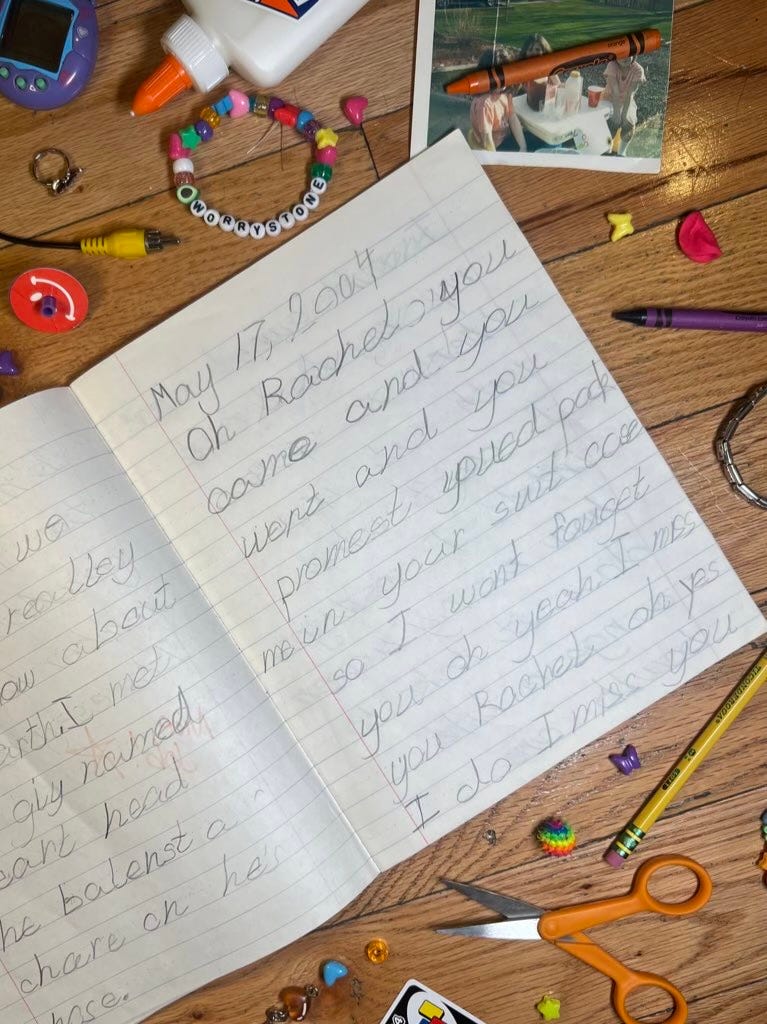 WORRYSTONE
orange
May 17, 2004
Oh Rachel you
came and you
went and you
promest youed pack
me in your suit case
so I wont fouget
you oh yeah I miss
you Rachel oh yes
I do I miss you
we
realley
about
I met
giy named
head
he balenst a
chare on he's
nose.